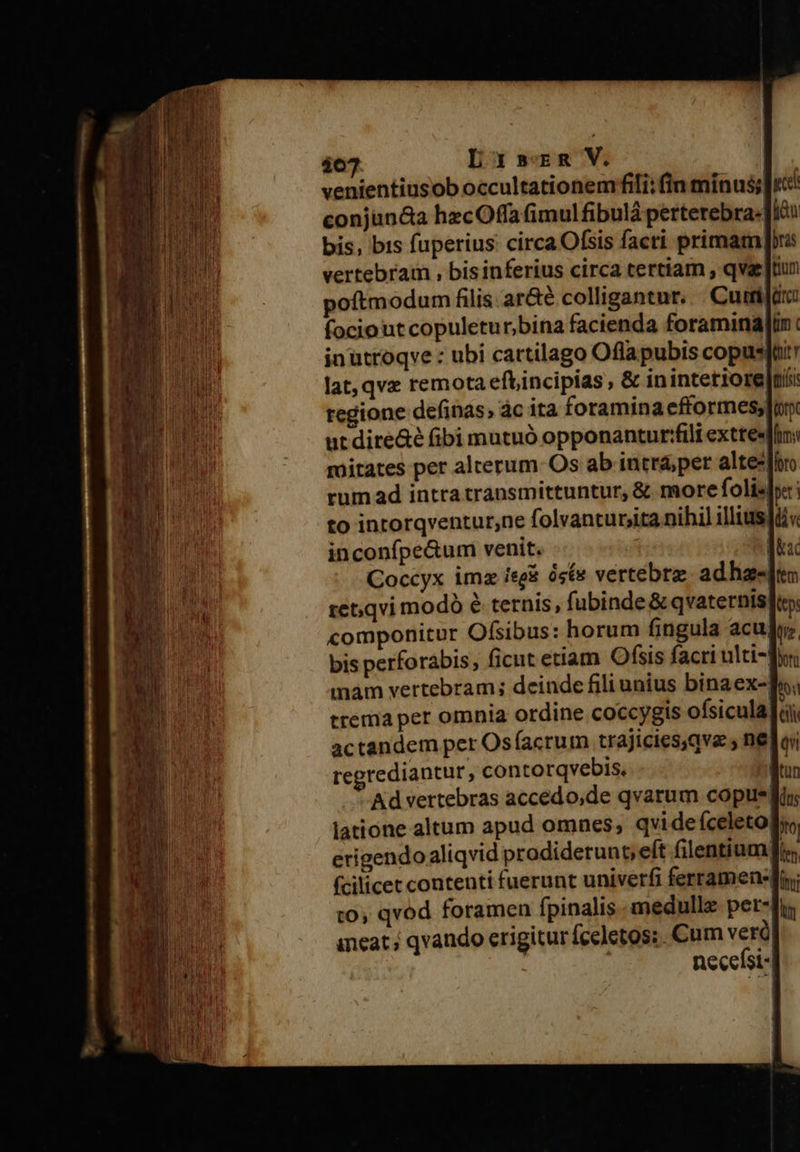 407 LIBER V.
venientius ob occultationem fili: ſin minus;
conjuncta hæc Oſſa ſimul fibulâ perterebra-
bis, bis ſuperius circa Oſsis ſacri primam
vertebram, bis inferius circa tertiam, qvæ
poſtmodum filis arctè colligantur. Cum
ſocio ut copuletur, bina facienda foramina
in utroqve: ubi cartilago Oſſa pubis copu-
lat, qvæ remota eſt, incipias, & in interiore
regione deſinas, ac ita foramina efformes,
ut directè ſibi mutuò opponantur: fili extre-
mitates per alterum Os ab intrà, per alte-
rum ad intra transmittuntur, & more ſoli-
to intorqventur, ne ſolvantur, ita nihil illius
in conſpectum venit.
Coccyx imæ ἱεροῦ ὀςέυ vertebræ adhæ-
ret, qvi modò è ternis, ſubinde & qvaternis
componitur Oſsibus: horum ſingula acu
bis perforabis, ſicut etiam Oſsis ſacri ulti-
mam vertebram; deinde fili unius bina ex-
trema per omnia ordine coccygis oſsicula
ac tandem per Os ſacrum trajicies, qvæ, ne
regrediantur, contorqvebis.
Ad vertebras accedo, de qvarum copu-
latione altum apud omnes, qvi de ſceleto
erigendo aliqvid prodiderunt, eſt ſilentium
ſcilicet contenti fuerunt univerſi ferramen-
to, qvod foramen ſpinalis medullæ per-
meat; qvando erigitur ſceletos: Cum verò
neceſsi-